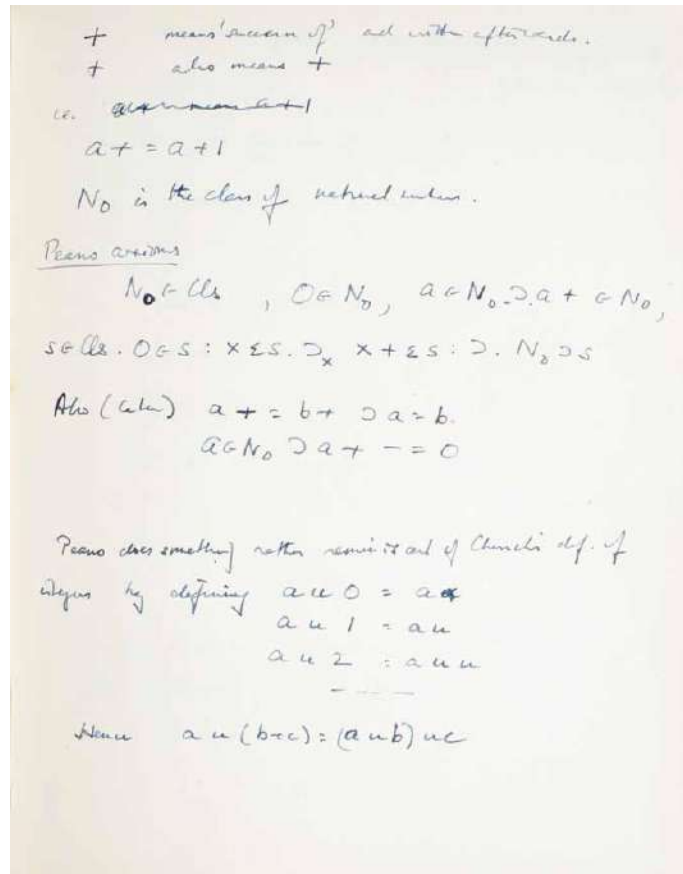 + means 'successor of' and written afterwards.
+ also means +
i.e. a+ means a+1
a+ = a+1
N₀ is the class of natural numbers.
Peano axioms
N₀ ϵ Cls , 0 ϵ N₀, a ϵ N₀ .⊃. a+ ϵ N₀,
s ϵ Cls . 0 ϵ s : x ε s . ⊃ₓ x+ ε s : ⊃. N₀ ⊃ s
Also (later) a+ = b+ ⊃ a = b.
a ϵ N₀ ⊃ a+ -= 0
Peano does something rather reminiscent of Church's def. of
integers by defining a u 0 = a
a u 1 = a u
a u 2 = a u u
- - - -
Hence a u (b+c) = (a u b) u c